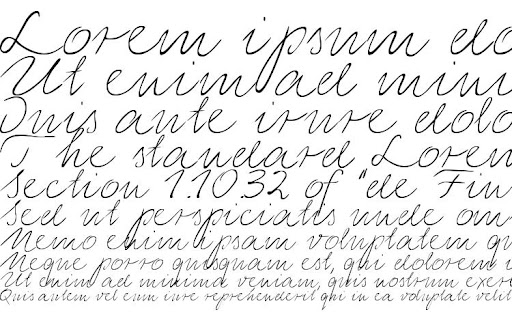 Lorem ipsum do
Ut enim ad mini
Quis aute irure dolo
The standard Loren
section 1.10.32 of "de Fin
Sed ut perspiciatis unde om
Nemo enim ipsam voluptatem qu
Neque porro quisquam est, qui dolorem i
Ut enim ad minima veniam, quis nostrum exerc
Quis autem vel eum iure reprehenderit qui in ea voluptate velit